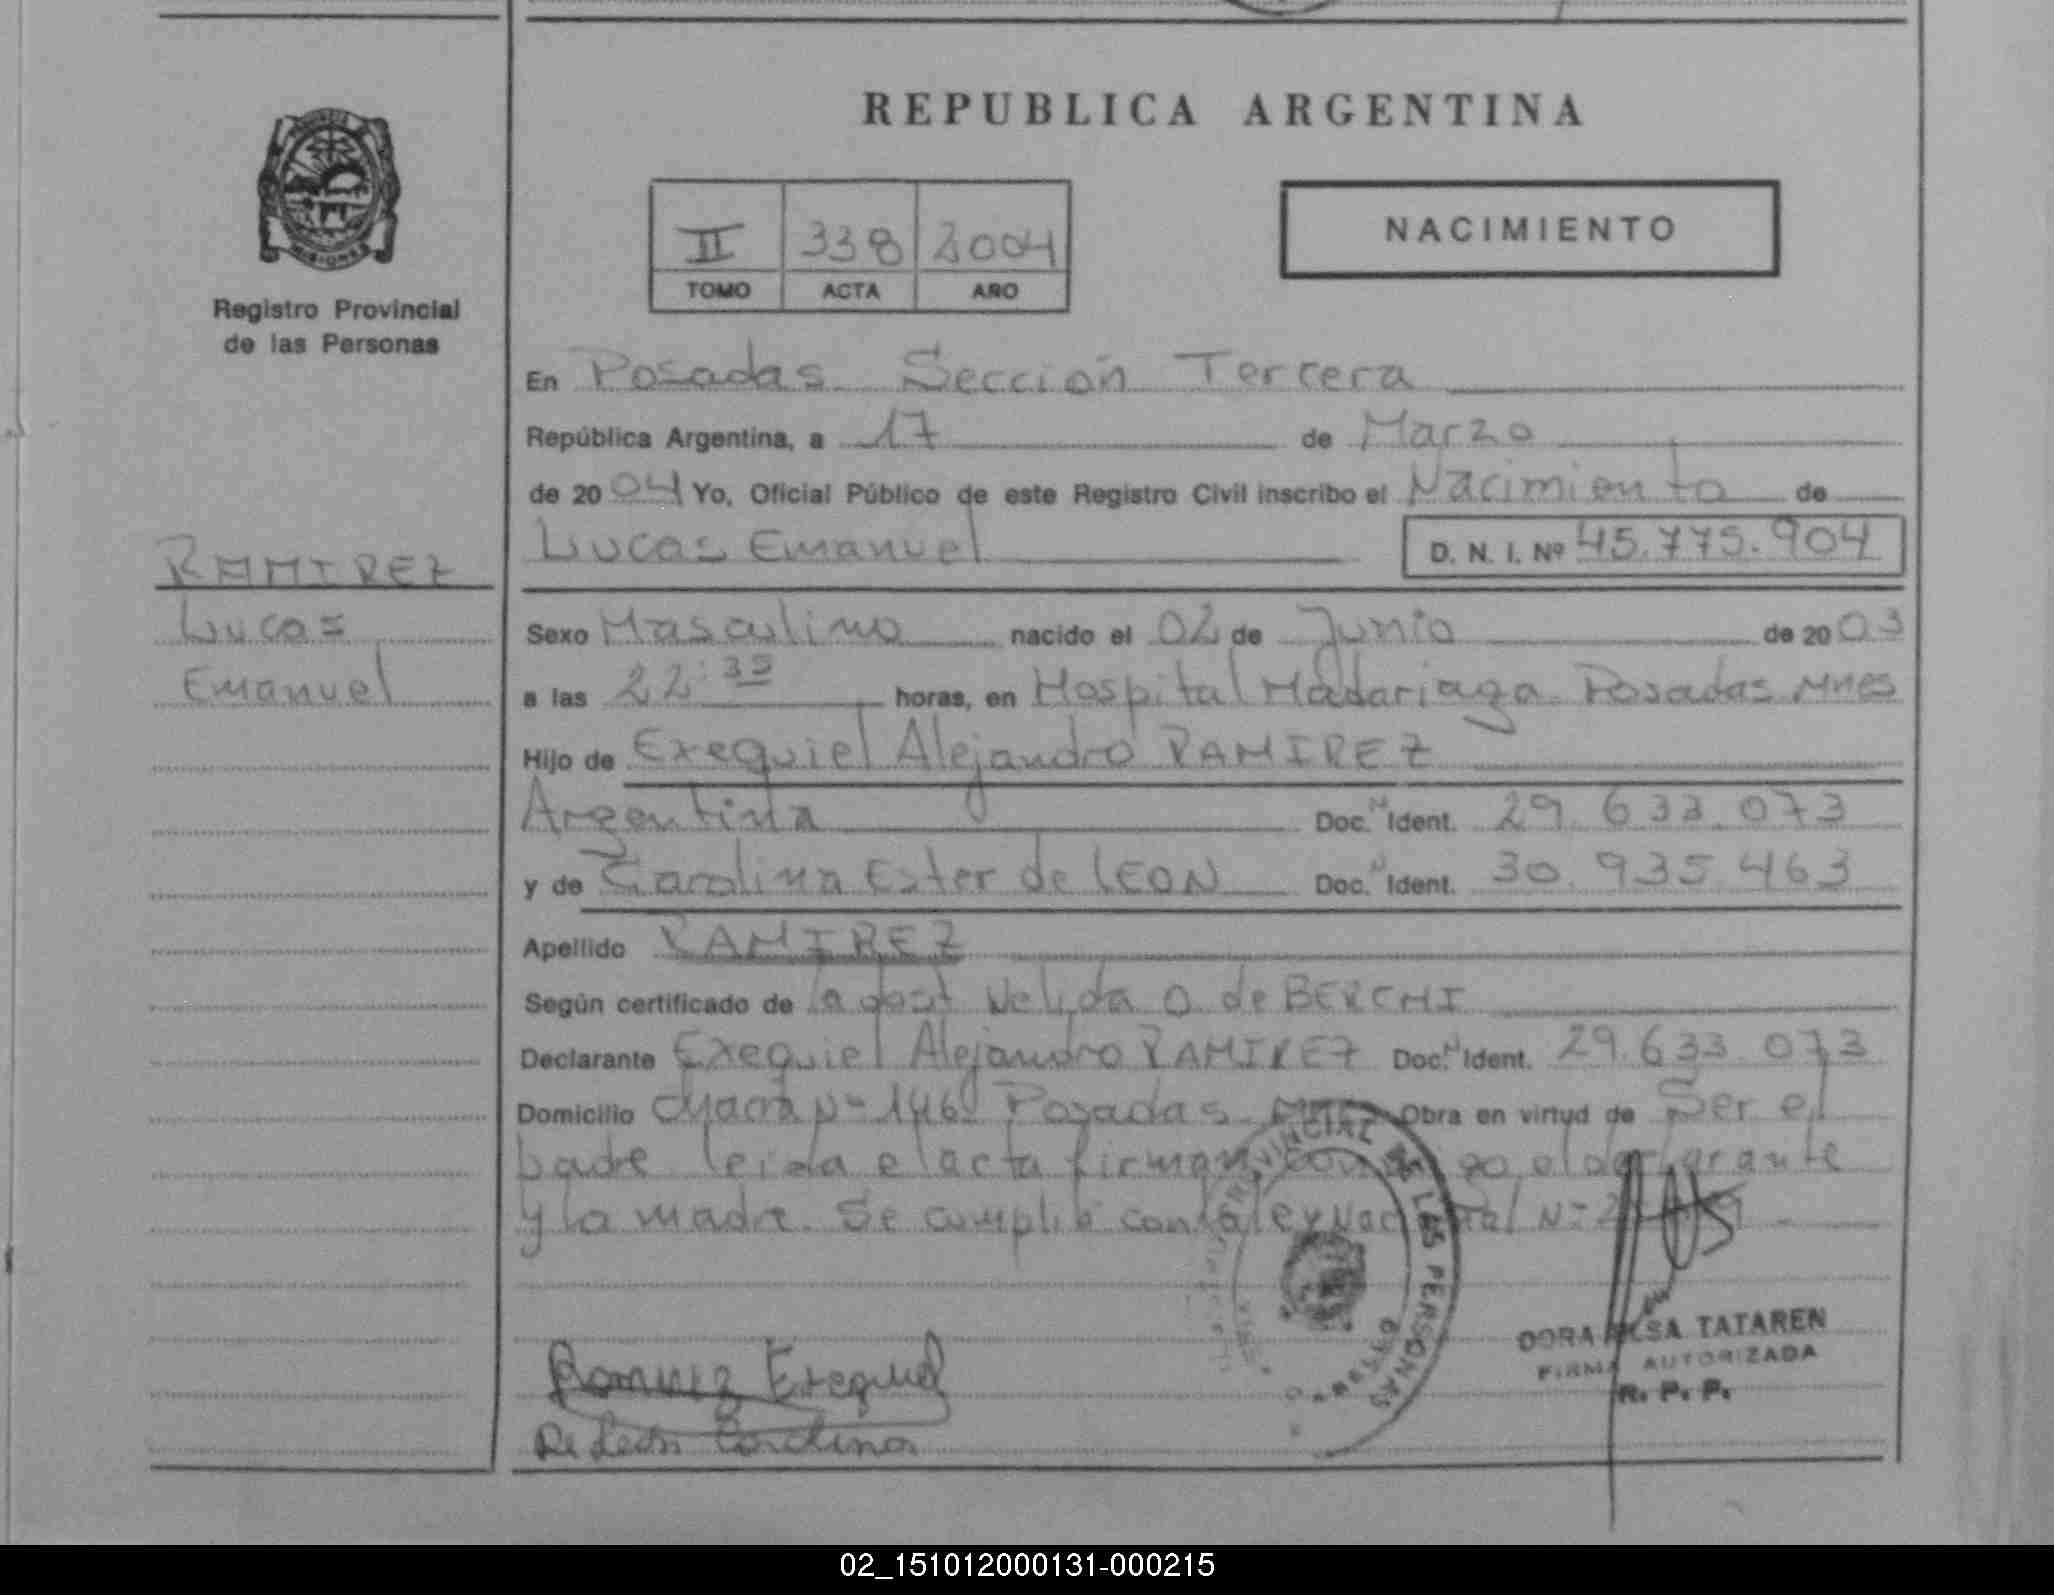 REPUBLICA ARGENTINA
NACIMIENTO
II 338 2004
TOMO ACTA AÑO
MISIONES
Registro Provincial
de las Personas
RAMIREZ
Lucas
Emanuel
En Posadas Sección Tercera
República Argentina, a 17 de Marzo
de 2004 Yo, Oficial Público de este Registro Civil inscribo el Nacimiento de
Lucas Emanuel D. N. I. Nº 45.775.904
Sexo Masculino nacido el 02 de Junio de 2003
a las 22:35 horas, en Hospital Madariaga Posadas Mnes
Hijo de Exequiel Alejandro RAMIREZ
Argentina Doc. N Ident. 29.633.073
y de Carolina Ester de LEON Doc. N Ident. 30.935.463
Apellido RAMIREZ
Según certificado de la obst Nelida O. de BERCHI
Declarante Exequiel Alejandro RAMIREZ Doc. N Ident. 29.633.073
Domicilio chacra Nº 146 Posadas Mnes Obra en virtud de Ser el
padre leida el acta firman conmigo el declarante
y la madre. Se cumplió con la ley Nacional Nº
PROVINCIAL DE LAS PERSONAS
Ramirez Exequiel
De León Carolina
DORA ELSA TATAREN
FIRMA AUTORIZADA
R. P. P.
02_151012000131-000215